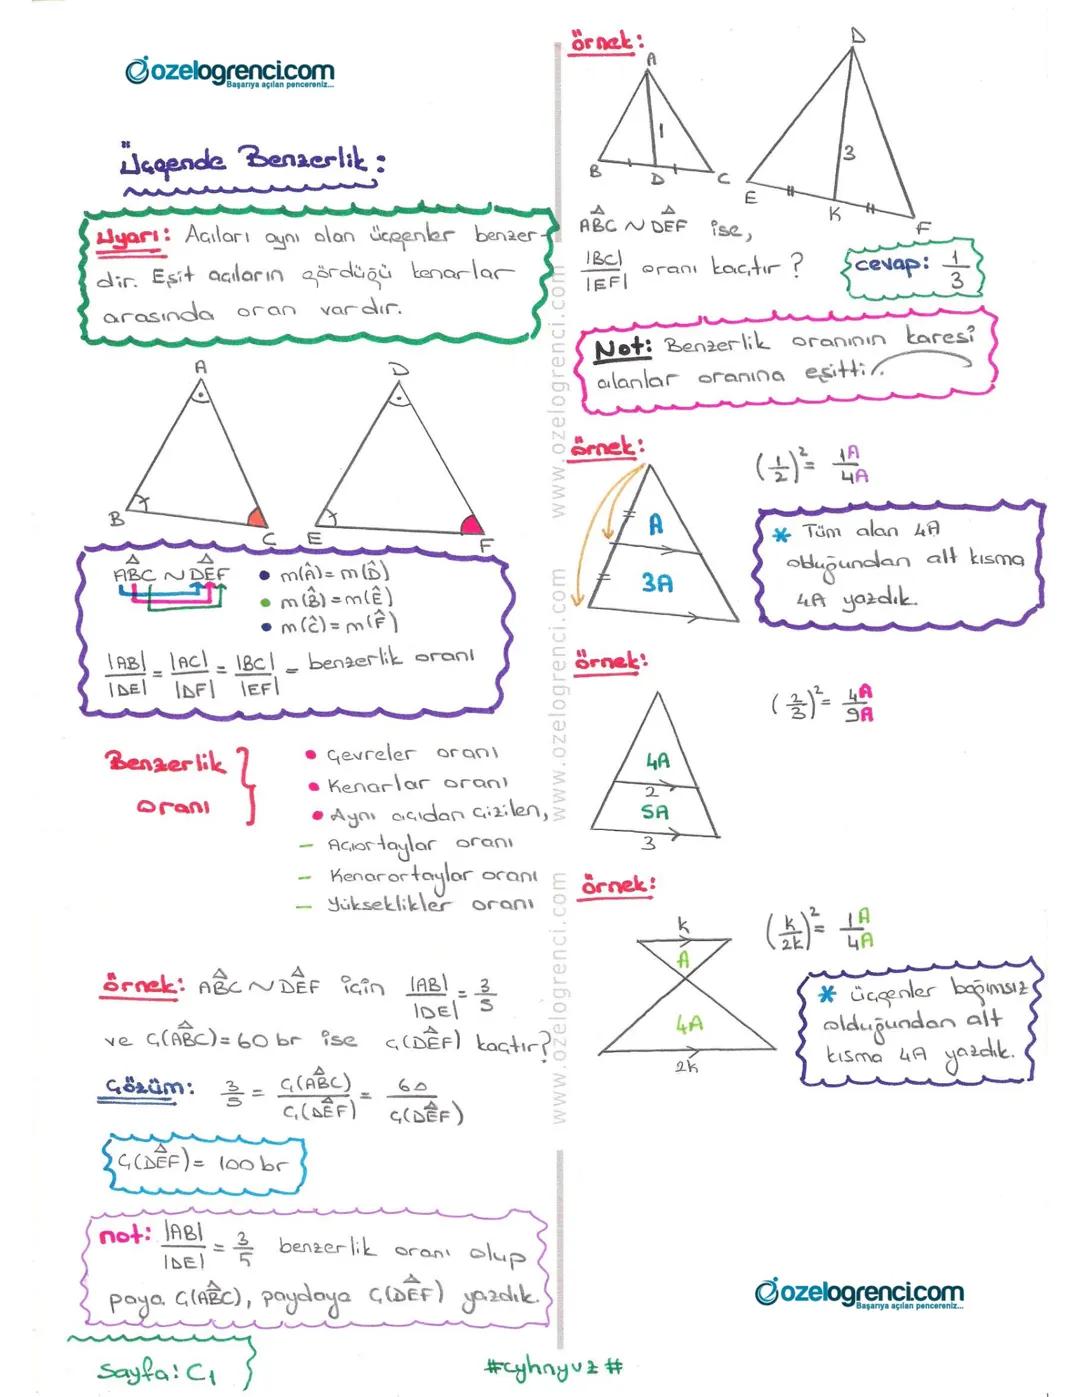 ozelogrenci.com
Başarıya açılan pencereniz...
Üçgende Benzerlik:
Uyarı: Açıları aynı olan üçgenler benzer-
dir. Eşit açıların gördüğü kenarlar
arasında oran vardır.
A
B
C
D
E
F
ABC ~ DEF
• m(Â) = m(D̂)
• m(B̂) = m(Ê)
• m(Ĉ) = m(F̂)
|AB|/|DE| = |AC|/|DF| = |BC|/|EF| = benzerlik oranı
Benzerlik oranı }
• Çevreler oranı
• Kenarlar oranı
• Aynı açıdan çizilen,
– Açıortaylar oranı
– Kenarortaylar oranı
– Yükseklikler oranı
örnek: ABC ~ DEF için |AB|/|DE| = 3/5
ve Ç(ABC) = 60 br ise Ç(DEF) kaçtır?
Çözüm: 3/5 = Ç(ABC)/Ç(DEF) = 60/Ç(DEF)
Ç(DEF) = 100 br
not: |AB|/|DE| = 3/5 benzerlik oranı olup
paya Ç(ABC), paydaya Ç(DEF) yazdık.
Sayfa: C1
www.ozelogrenci.com www.ozelogrenci.com www.ozelogrenci.com
örnek:
A
1
B
D
C
D
3
E
K
F
ABC ~ DEF ise,
|BC|/|EF| oranı kaçtır?
cevap: 1/3
Not: Benzerlik oranının karesi
alanlar oranına eşittir.
örnek:
A
3A
(1/2)² = 1A/4A
* Tüm alan 4A
olduğundan alt kısma
4A yazdık.
örnek:
4A
2
5A
3
(2/3)² = 4A/9A
örnek:
k
A
4A
2k
(k/2k)² = 1A/4A
* üçgenler bağımsız
olduğundan alt
kısma 4A yazdık.
ozelogrenci.com
Başarıya açılan pencereniz...
#cyhnyvz#